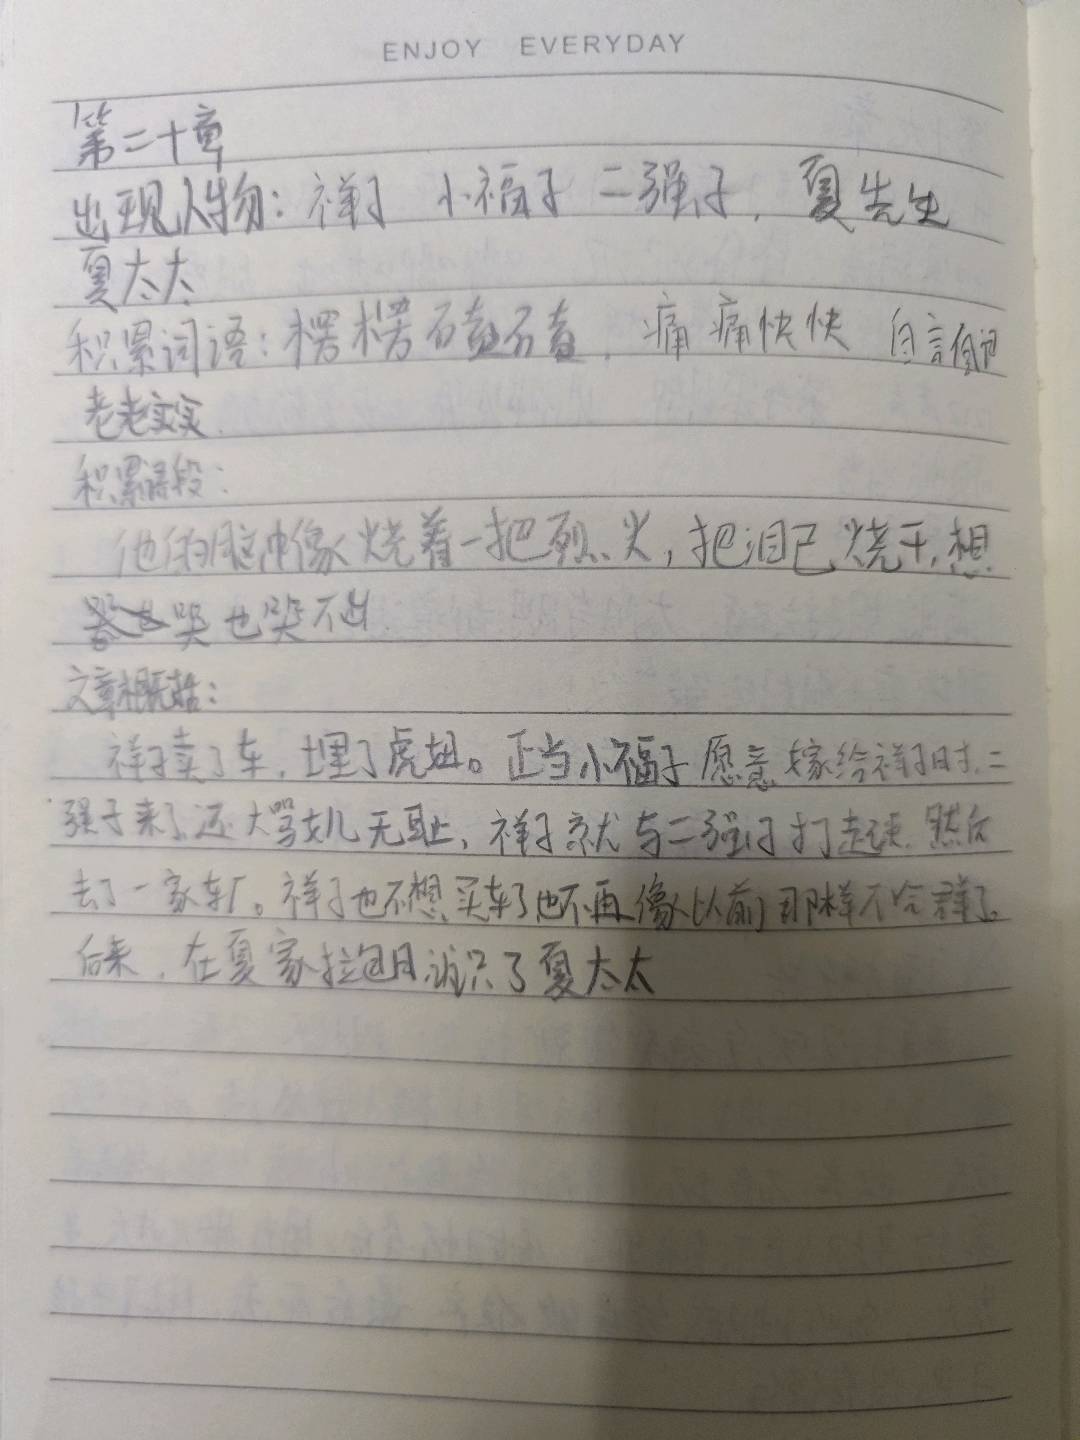 ENJOY EVERYDAY
第二十章
出现人物：祥子 小福子 二强子，夏先生
夏太太
积累词语：楞楞磕磕，痛痛快快 自言自语
老老实实
积累语段：
他的脑中像烧着一把烈火，把泪已烧干，想
哭也哭不出
文章概括：
祥子卖了车，埋了虎妞。正当小福子愿意嫁给祥子时，二
强子来了还大骂女儿无耻，祥子就与二强子打起来，然后
去了一家车厂。祥子也不想买车了他不再像以前那样不合群了。
后来，在夏家拉包月认识了夏太太